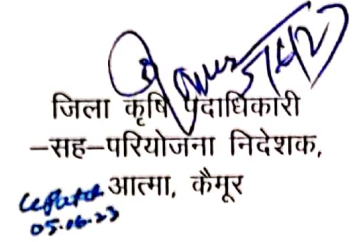 जिला कृषि पदाधिकारी
–सह–परियोजना निदेशक,
आत्मा, कैमूर
05.06.23